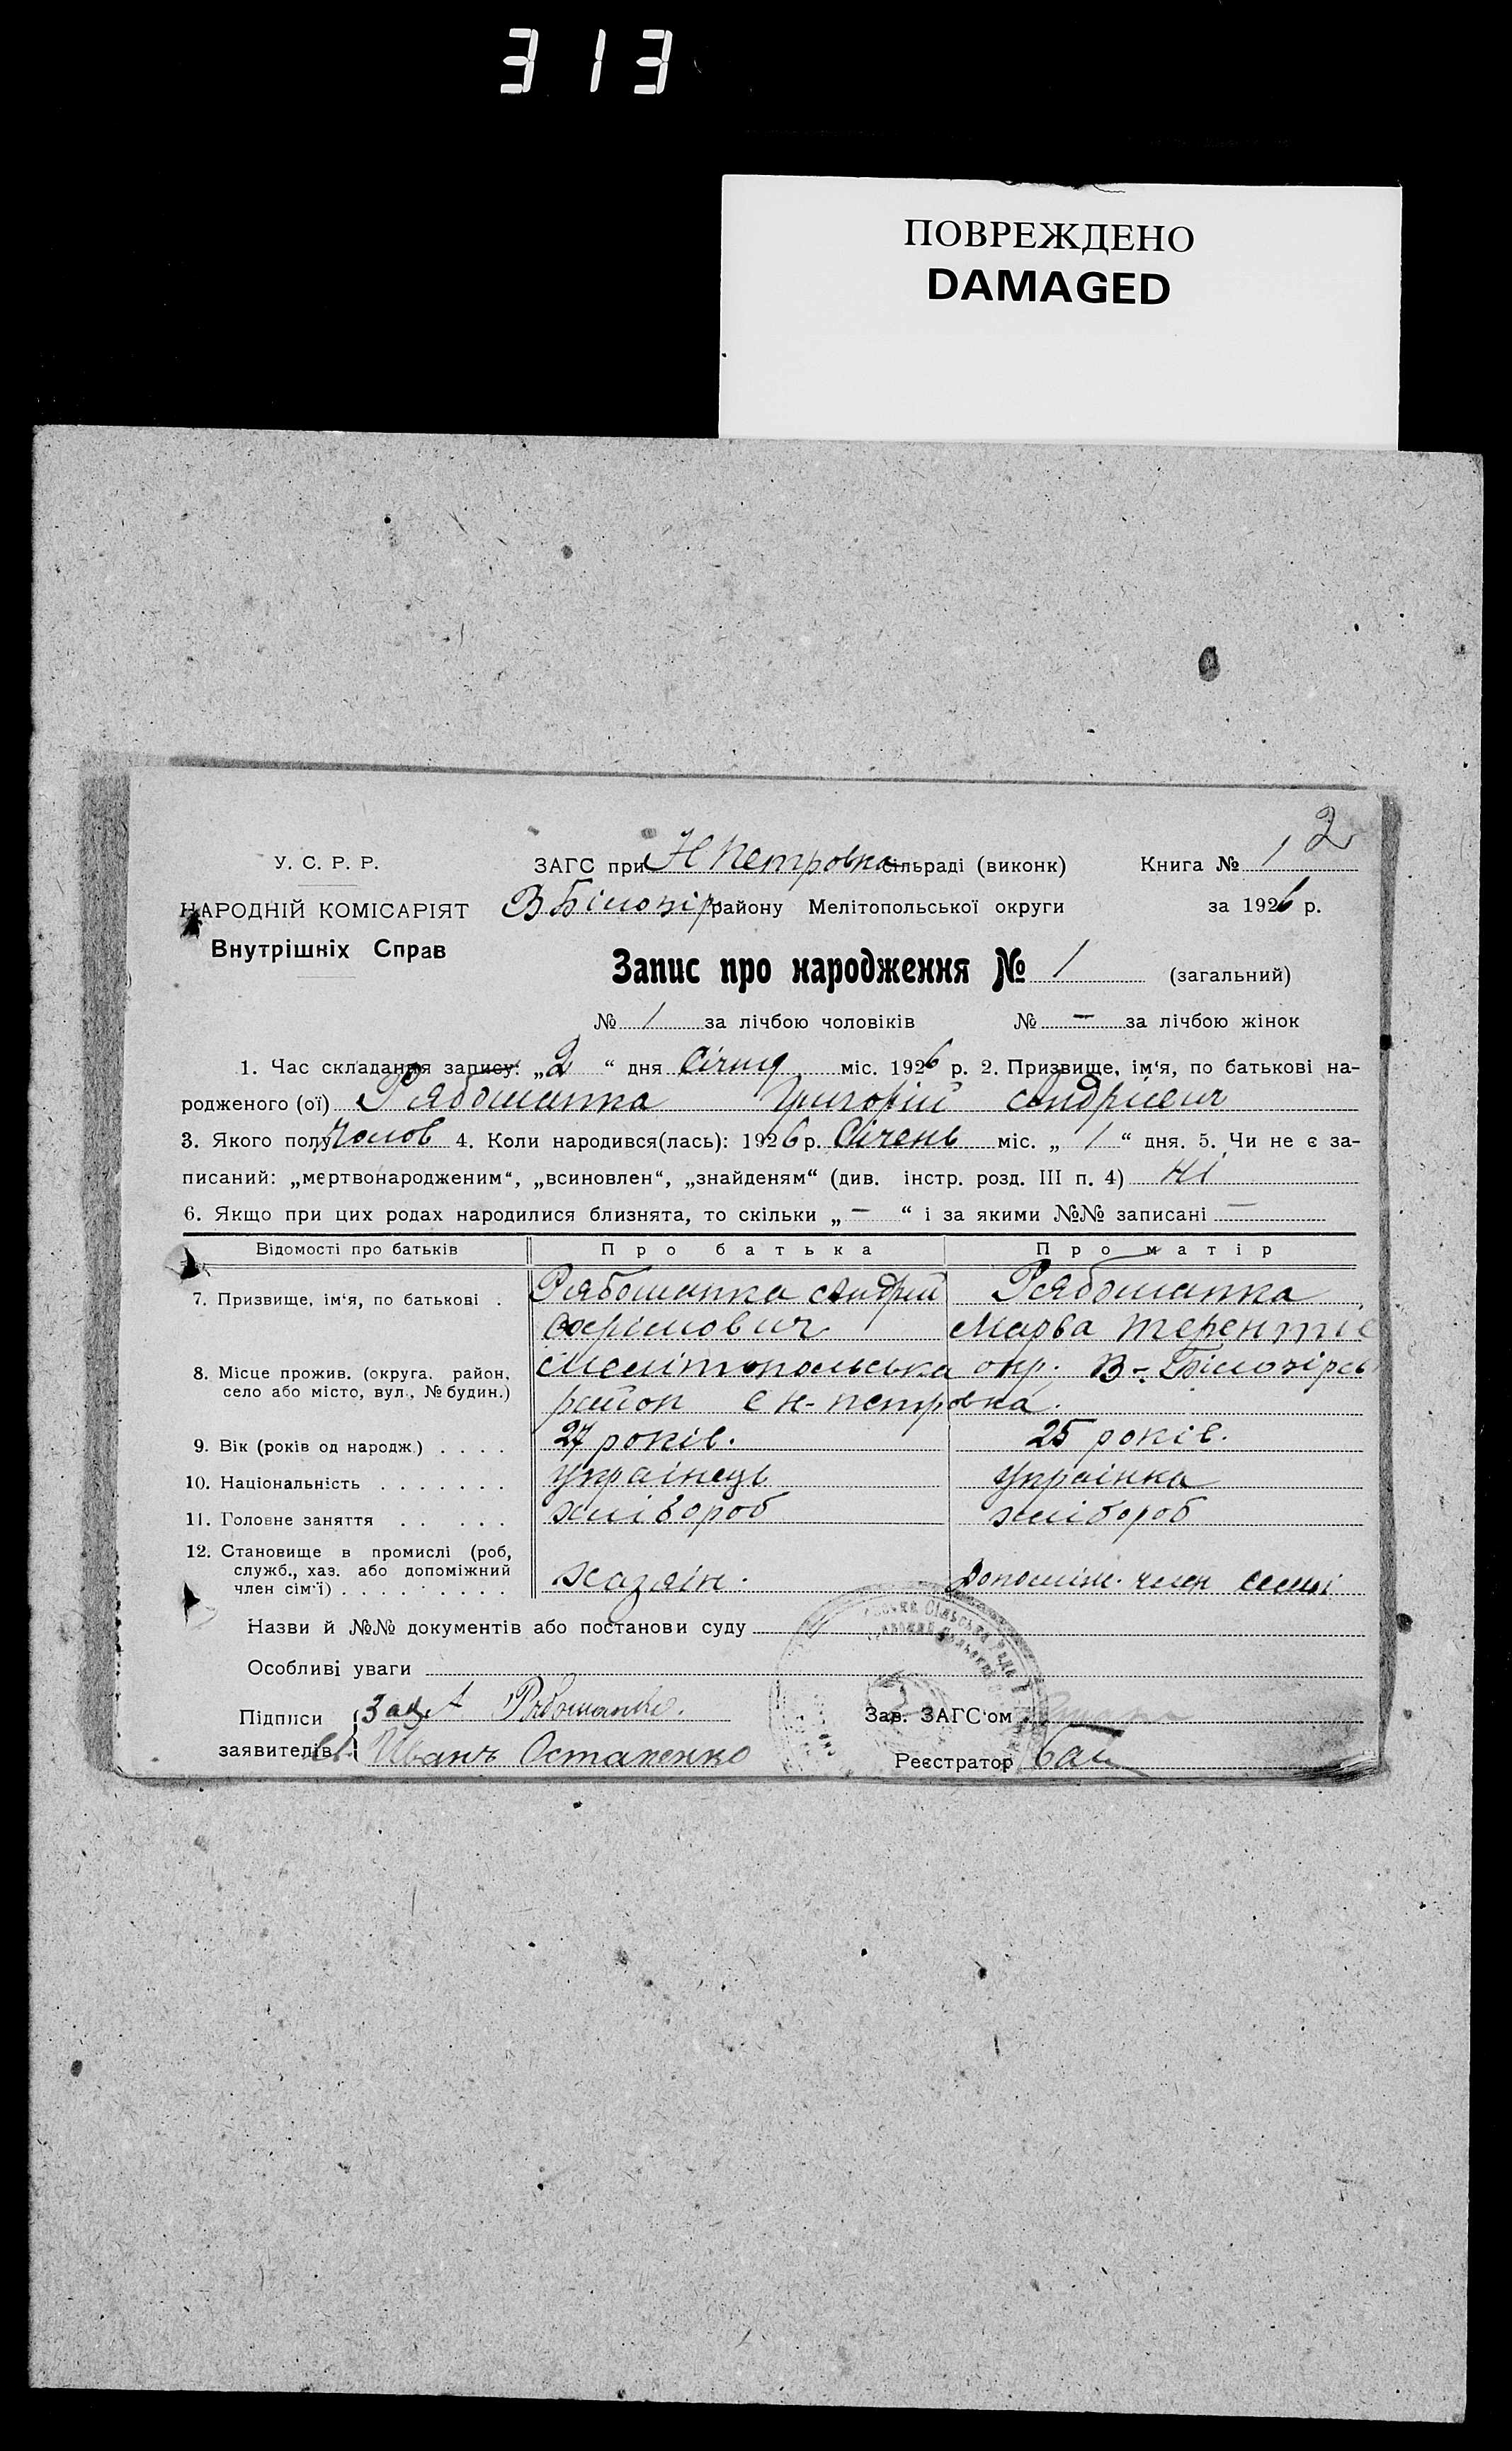 313
ПОВРЕЖДЕНО
DAMAGED
2
У. С. Р. Р.
ЗАГС при Н Петровка сільраді (виконк)
Книга № 1
НАРОДНІЙ КОМІСАРІЯТ
В Білозір району Мелітопольської округи
за 1926 р.
Внутрішніх Справ
Запис про народження № 1 (загальний)
№ 1 за лічбою чоловіків № — за лічбою жінок
1. Час складання запису: „2“ дня Січня міс. 1926 р. 2. Призвище, ім‘я, по батькові на-
родженого (ої) Рябошапка Григорій Андрієвич
3. Якого полу Чолов 4. Коли народився(лась): 1926 р. Січень міс. „1“ дня. 5. Чи не є за-
писаний: „мертвонародженим“, „всиновлен“, „знайденям“ (див. інстр. розд. III п. 4) Ні
6. Якщо при цих родах народилися близнята, то скільки „—“ і за якими №№ записані —
Відомості про батьків Про батька Про матір
7. Призвище, ім‘я, по батькові . Рябошапка Андрій Рябошапка
Марва Терентіє
8. Місце прожив. (округа, район, Мелітопольська окр. В-Білозірсь
село або місто, вул., № будин.)
район с Н-Петровка.
9. Вік (років од народж.) . . . . 27 років. 25 років.
10. Національність . . . . . . . Украінець Украінка
11. Головне заняття . . . . . хлібороб хлібороб
12. Становище в промислі (роб,
служб., хаз. або допоміжний
член сім‘ї) . . . . . . . . . Хазяін. Допоміж. член семьі
Назви й №№ документів або постанови суду
Особливі уваги
Підписи А Рябошапка.
Зав. ЗАГС‘ом
заявителів Иванъ Остапенко
Реєстратор